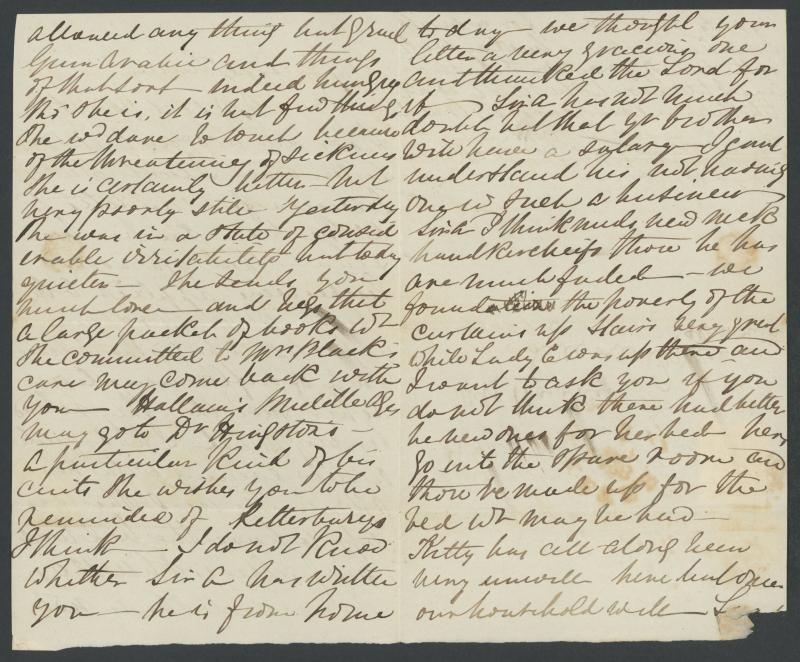 allowed any thing but gruel
Gum Arabic and things
of that sort — indeed hungry
tho' she is, it is but few things
she wd dare to touch because
of the threatening of sickness
She is certainly better — but
very poorly still Yesterday
she was in a state of consid
erable irritability but today
quieter — She sends you
much love — and begs that
a large packet of books wh
she committed to Mrs Black's
care may come back with
you — Hallam's Middle Ages
may go to Dr Kingston's —
a particular kind of bis
cuits she wishes you to be
reminded of Ketterburys
I think — I do not know
whether Sir A has written
you — he is from home
today — we thought your
letter a very gracious one
and thanked the Lord for
it — Sir A has not much
doubt but that yr brother
will have a salary — I can
understand his not having
one in such a business
Sir A I think needs new neck
handkercheifs those he has
are much faded — we
found the poverty of the
curtains up stairs very great
while Lady E was up there and
I want to ask you if you
do not think there had better
be new ones for her bed — hers
go into the spare room and
those be made up for the
bed wh may be had —
Kitty has all along been
very unwell here but
our household well —